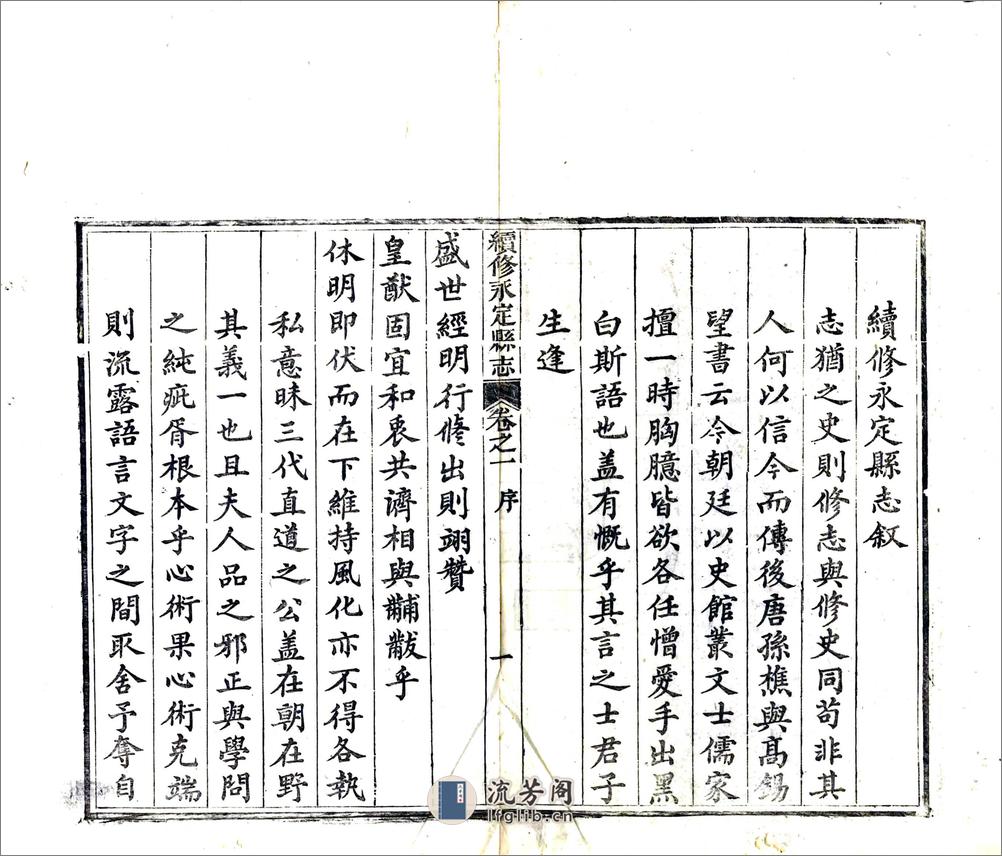 續修永定縣志叙
志猶之史則修志與修史同苟非其
人何以信今而傳後唐孫樵與髙錫
望書云今朝廷以史館叢文士儒家
擅一時胸臆皆欲各任憎愛手出黑
白斯語也盖有慨乎其言之士君子
生逢
續修永定縣志 卷之一 序 一
盛世經明行修出則翊贊
皇猷固宜和衷共濟相與黼黻乎
休明即伏而在下維持風化亦不得各執
私意昧三代直道之公盖在朝在野
其義一也且夫人品之邪正與學問
之純疵胥根本乎心術果心術克端
則流露語言文字之間取舍予奪自
流芳阁
lfglib.cn